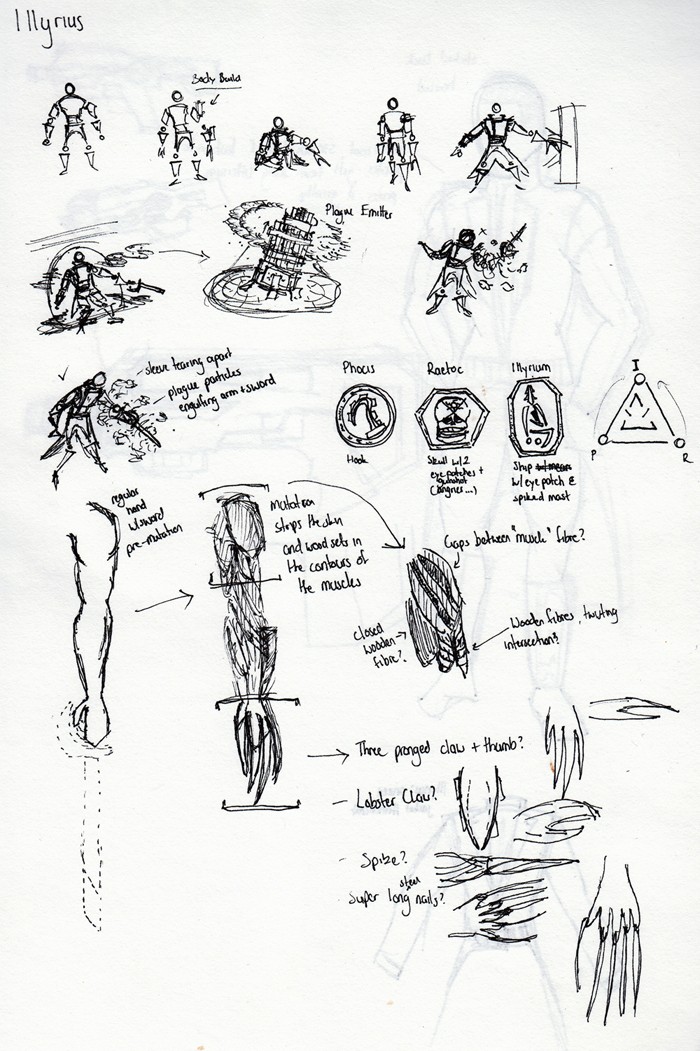 Illyrius
Body Build
Plague Emitter
sleeve tearing apart
plague particles
engulfing arm + sword
Phocis
Raetoc
Illyrium
I
P
R
Hook
Skull w/2
eye patches +
gunshot
(angrier...)
Ship
w/ eye patch &
spiked mast
regular
hand
w/sword
pre-mutation
mutation
strips the skin
and wood sets in
the contours of
the muscles
Gaps between "muscle" fibre?
closed
wooden
fibre?
Wooden fibres, twisting
intersection?
Three pronged claw + thumb?
- Lobster Claw?
- Spike?
steel
Super long nails?